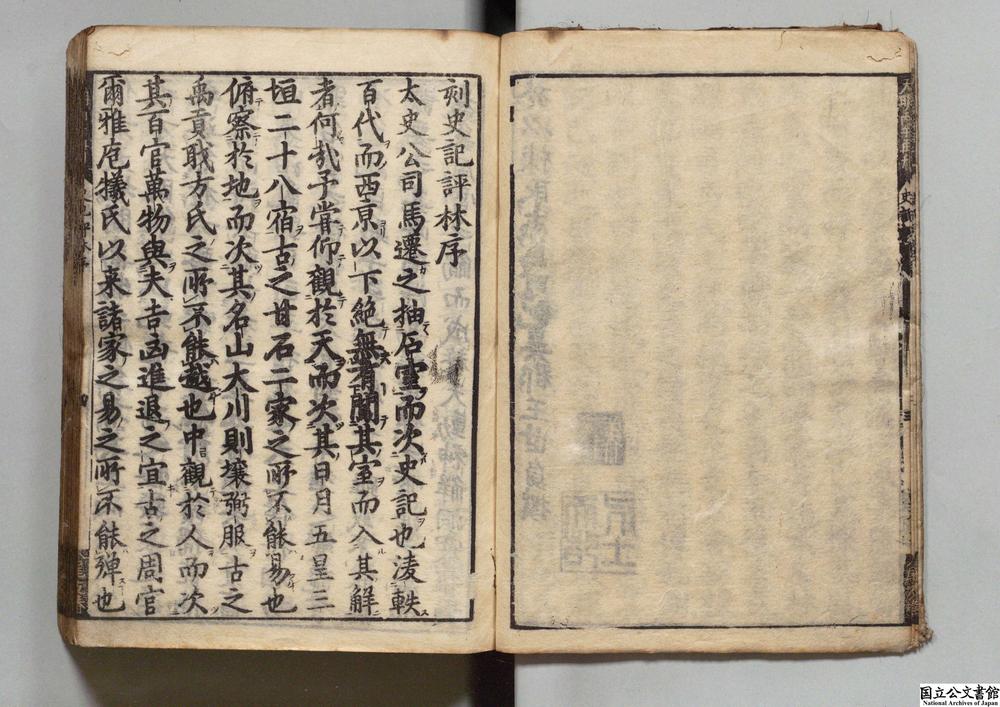 刻史記評林序
太史公司馬遷之抽石室而次史記也凌軼
百代而西京以下絶無有闖其室而入其解
者何㢤予嘗仰觀於天而次其日月五星三
垣二十八宿古之甘石二家之所不能易也
俯察於地而次其名山大川則壤弼服古之
禹貢職方氏之所不能越也中觀於人而次
其百官萬物與夫吉凶進退之宜古之周官
爾雅庖犧氏以来諸家之易之所不能殫也
国立公文書館
National Archives of Japan